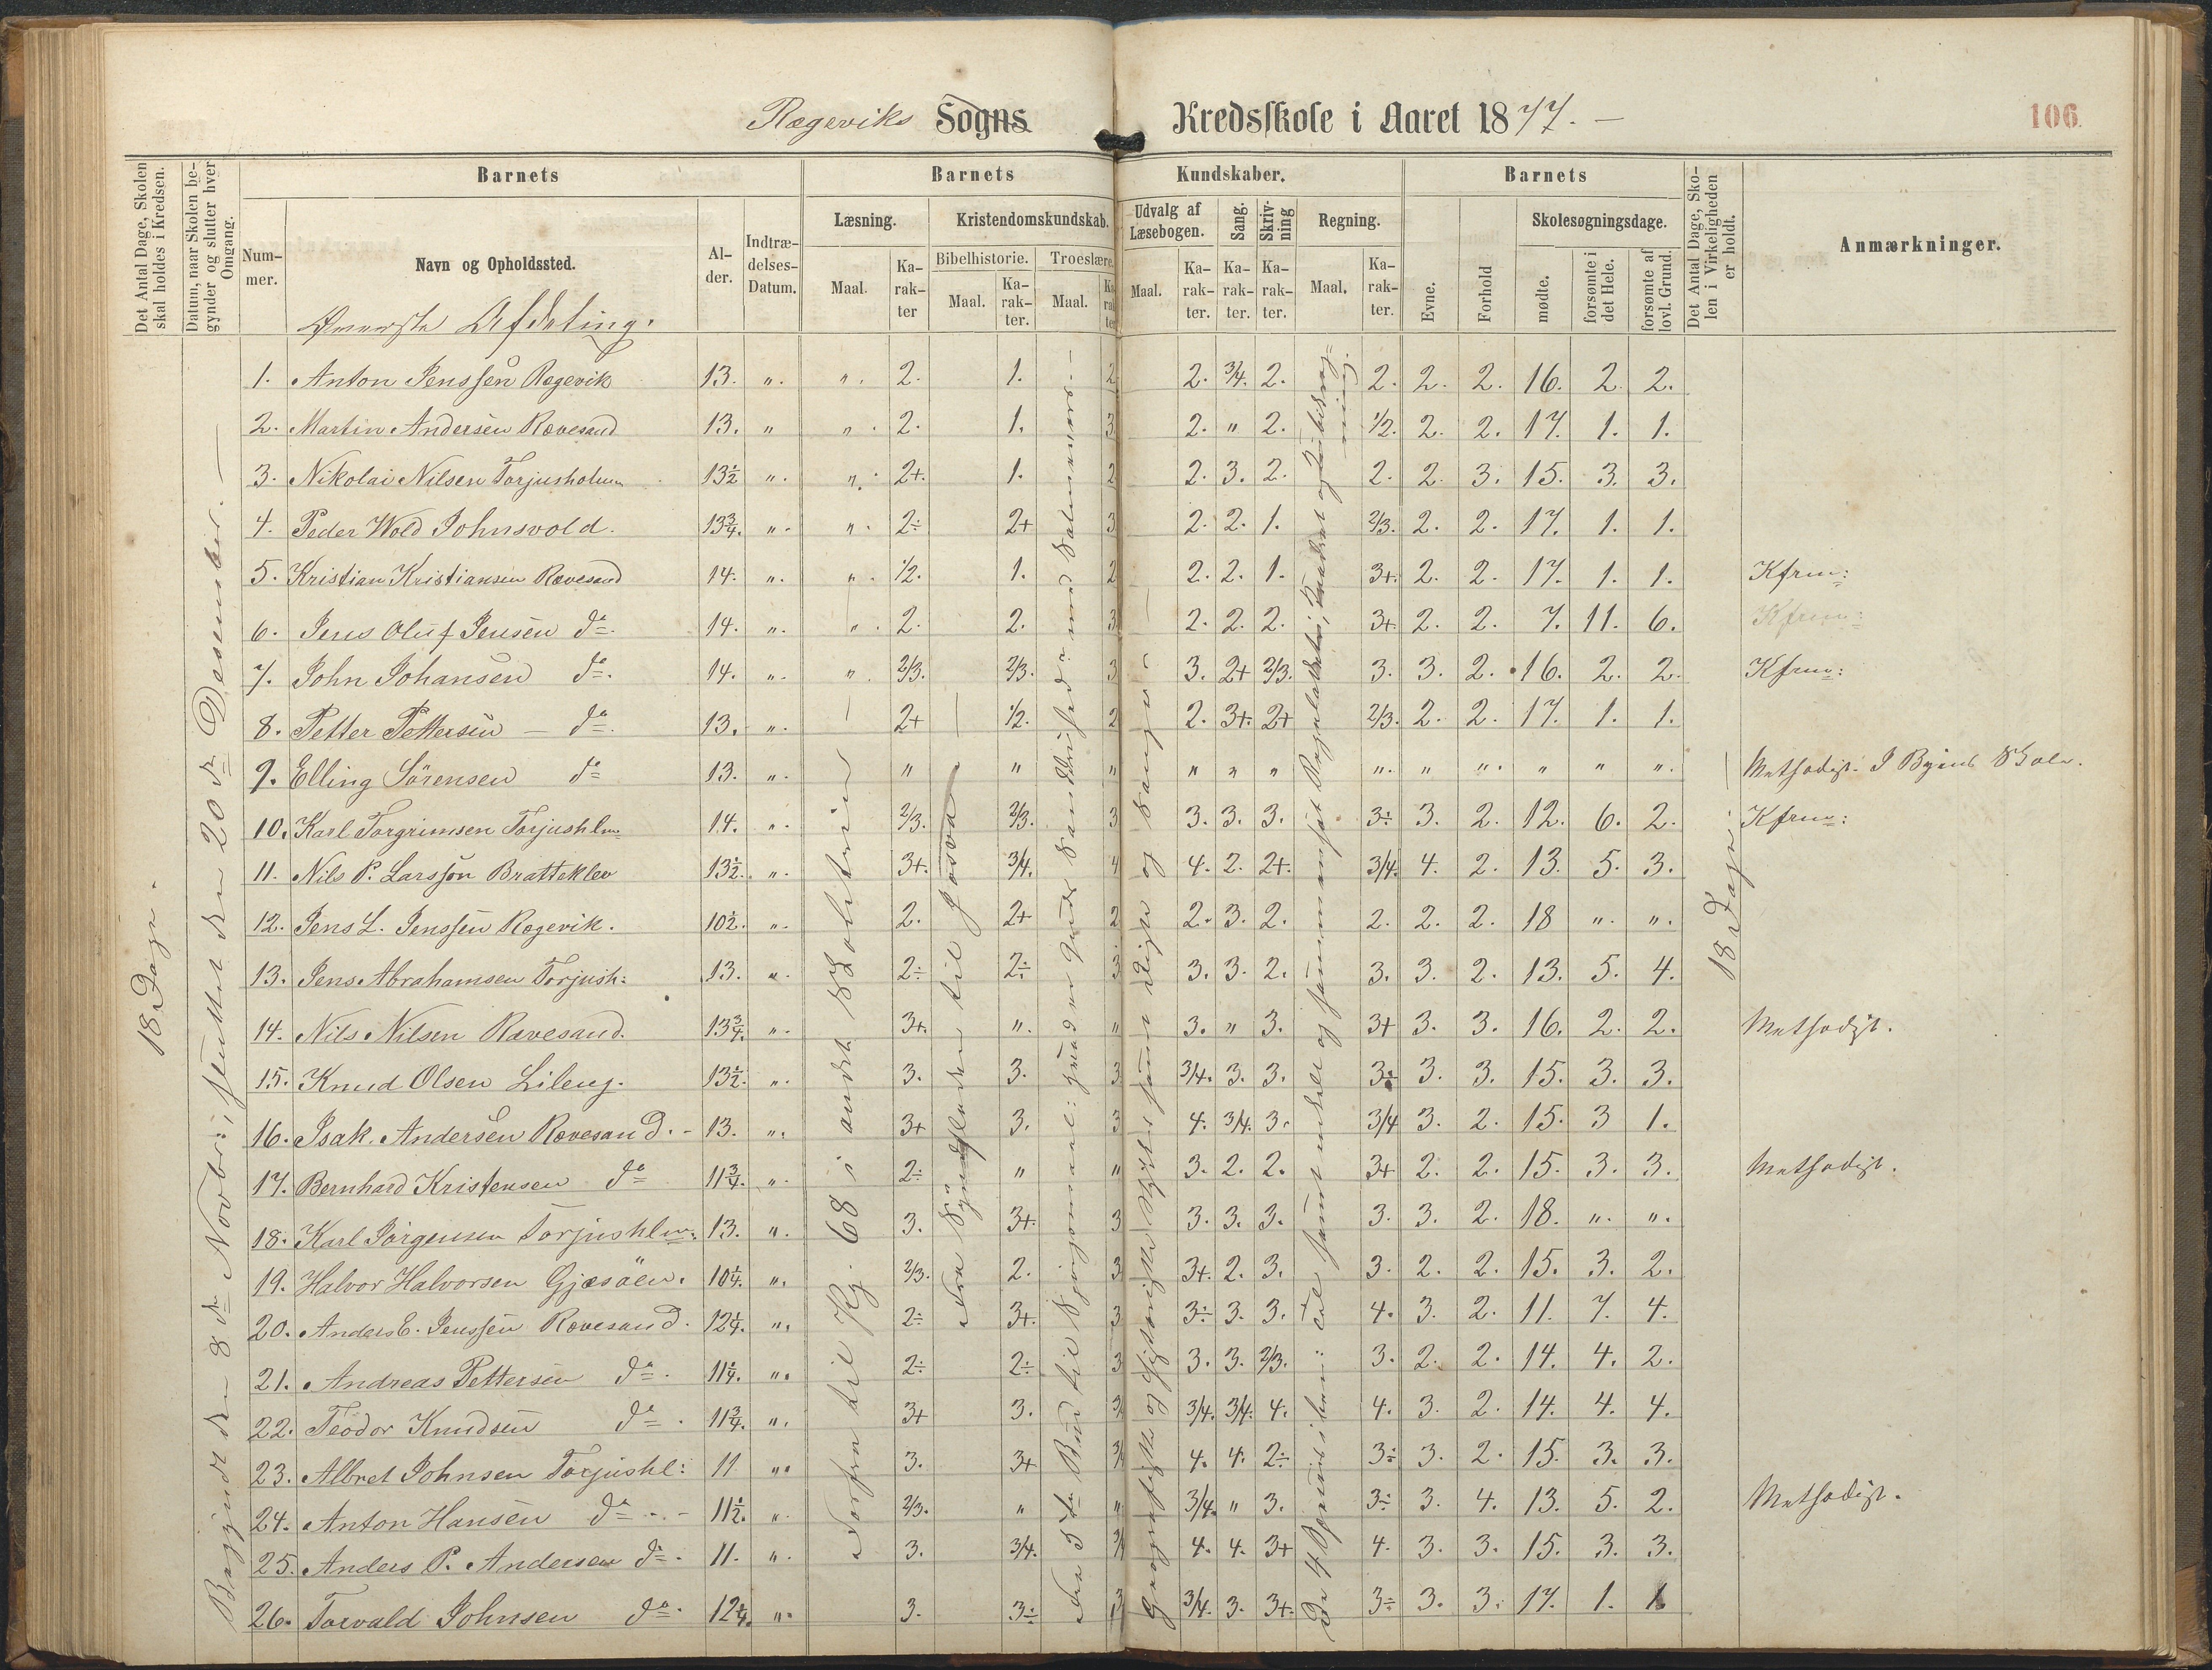 Rægeviks Sogns Kredsskole i Aaret 1877. –
106.
Det Antal Dage, Skolen skal holdes i Kredsen.
Datum, naar Skolen begynder og slutter hver Omgang.
Barnets
Barnets Kundskaber.
Barnets
Det Antal Dage, Skolen i Virkeligheden er holdt.
Anmærkninger.
Nummer.
Navn og Opholdssted.
Alder.
Indtrædelses-Datum.
Læsning.
Kristendomskundskab.
Udvalg af Læsebogen.
Sang.
Skrivning
Regning.
Evne.
Forhold
Skolesøgningsdage.
Bibelhistorie.
Troeslære.
Maal. Karakter
Maal. Karakter.
Maal. Karakter
Maal. Karakter.
Karakter.
Karakter.
Maal. Karakter.
mødte.
forsømte i det Hele.
forsømte af lovl. Grund.
Øverste Afdeling.
18 Dage.
Begyndt den 8de Novbr:, sluttet den 20de Desember. –
18 Dage. –
1. Anton Jenssen Rægevik 13. ". ". 2. 1. 2 2. 3/4. 2. 2. 2. 2. 16. 2. 2.
2. Martin Andersen Rævesand 13. " ". 2. 1. 3 2. " 2. 1/2. 2. 2. 17. 1. 1.
3. Nikolai Nilsen Torjusholm 13½ ". ". 2+. 1. 2 2. 3. 2. 2. 2. 3. 15. 3. 3.
4. Peder Wold Johnsvold. 13¾. ". ". 2÷ 2+ 3 2. 2. 1. 2/3. 2. 2. 17. 1. 1.
5. Kristian Kristiansen Rævesand 14. ". ". 1/2. 1. 2 2. 2. 1. 3+. 2. 2. 17. 1. 1. Kfrm:
6. Jens Oluf Jensen do. 14. ". ". 2. 2. 3 2. 2. 2. 3+. 2. 2. 7. 11. 6. Kfrm:
7. John Johansen do. 14. ". ". 2/3. 2/3. 3 3. 2+ 2/3. 3. 3. 2. 16. 2. 2. Kfrm:
8. Petter Pettersen – do. 13. ". 2+ 1/2. 2 2. 3+. 2+ 2/3. 2. 2. 17. 1. 1.
9. Elling Sörensen do 13. ". " " " " " " ". " ". " " ". Methodist. I Byens Skole.
10. Karl Torgrimsen Torjushlm 14. ". 2/3. 2/3. 3 3. 3. 3. 3÷ 3. 2. 12. 6. 2. Kfrm:
11. Nils P. Larsson Bratteklev 13½. ". 3+. 3/4. 4 4. 2. 2+. 3/4. 4. 2. 13. 5. 3.
12. Jens L. Jenssen Rægevik. 10½. ". 2. 2+ 2 2. 3. 2. 2. 2. 2. 18 ". ".
13. Jens Abrahamsen Torjush: 13. ". 2÷ 2÷ 3 3. 3. 2. 3. 3. 2. 13. 5. 4.
14. Nils Nilsen Rævesand. 13¾. ". 3+. ". " 3. " 3. 3+ 3. 3. 16. 2. 2. Methodist.
15. Knud Olsen Lileng. 13½. ". 3. 3. 3 3/4. 3. 3. 3÷ 3. 3. 15. 3. 3.
16. Isak Andersen Rævesand. – 13. ". 3+ 3. 3 4. 3/4. 3. 3/4 3. 2. 15. 3 1.
17. Bernhard Kristensen do 11¾. ". 2÷ " " 3. 2. 2. 3+ 2. 2. 15. 3. 3. Methodist.
18. Karl Jörgensen Torjushlm: 13. ". 3. 3+. 3 3. 3. 3. 3. 3. 2. 18. ". ".
19. Halvor Halvorsen Gjæsöen. 10¼. ". 2/3. 2. 3 3+. 2. 3. 3. 2. 2. 15. 3. 2.
20. Anders E. Jenssen Rævesand. 12¼. ". 2÷ 3+. 3 3÷ 3. 3. 4. 3. 2. 11. 7. 4.
21. Andreas Pettersen do. 11¼. ". 2÷ 2÷ 3 3. 3. 2/3. 3. 2. 2. 14. 4. 2.
22. Teodor Knudsen do. 11¾. ". 3+ 3. 3/4. 3/4. 4. 4. 3. 2. 14. 4. 4.
23. Albret Johnsen Torjushl: 11 ". 3. 3+ 4. 4. 2÷ 3÷ 3. 2. 15. 3. 3.
24. Anton Hansen do – 11½. ". 2/3. " " 3/4. " 3. 3÷ 3. 4. 13. 5. 2. Methodist.
25. Anders P. Andersen do. 11. ". 3. 3/4. 4. 4. 3+ 4. 3. 3. 15. 3. 3.
26. Torvald Johnsen do. 12¼. ". 3. 3÷ 3 3/4. 3. 3+. 3÷ 3. 3. 17. 1. 1
Forfra til Kj. 68 i andet Skoletrin –
Fra Syndfloden til Josva –
Fra 5te Bud til Spörgsmaal:
Geografiske og historiske